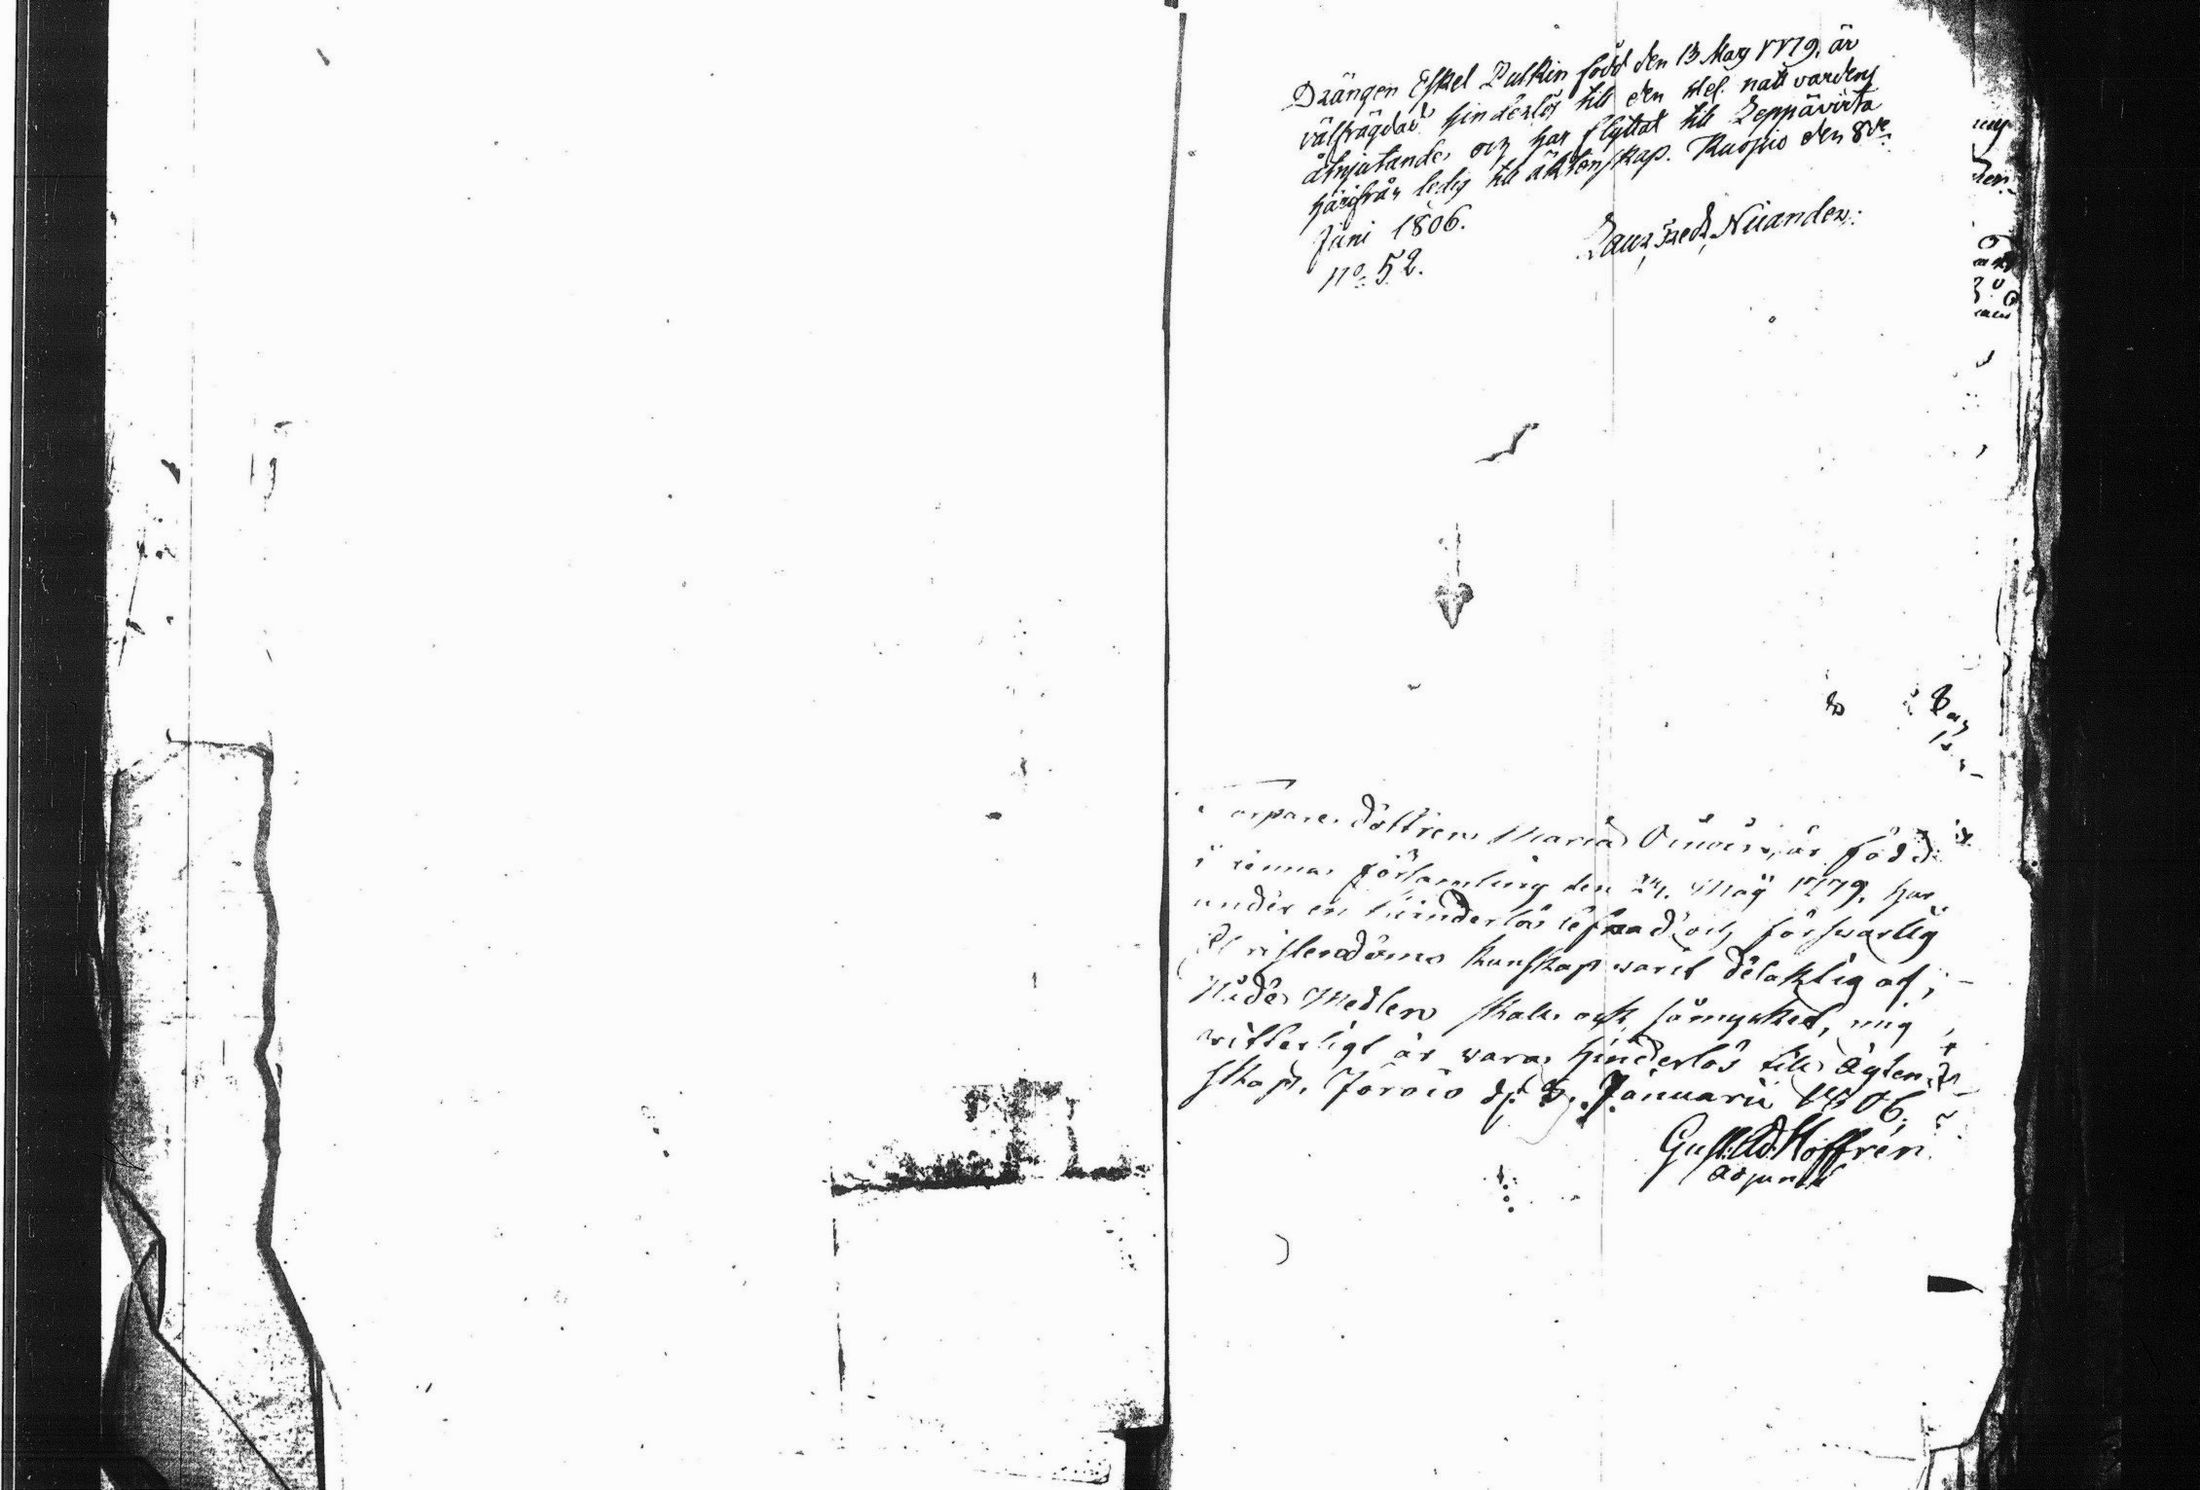 Drängen Eskel Pulkin född den 13 May 1779, är
välfrägdad hinderlös till den Hel. nattvardens
åtnjutande, och har flyttat till Leppävirta
härifrån ledig till äktenskap. Kuopio den 8de
Juni 1806.
No. 52.
Laur. Fredr. Niiander.
Torpare dottren Maria är född
i denna församling den 24. Maÿ 1779, har
under en hinderlös lefnad och försvarlig
Christendoms kunskap varit delaktig af
Nåde Medlen skall och såmycket mig
witterligt är vara hinderlös till ägten-
skap. Jorois d. 8. Januarii 1806.
Gust. Ad. Hoffrén
Adjunct